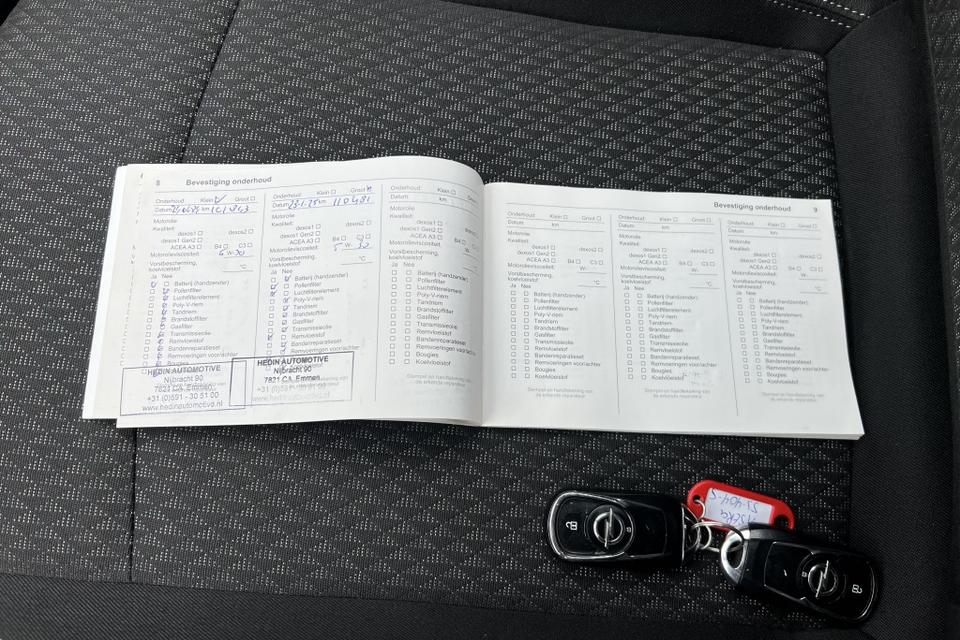 8 Bevestiging onderhoud
Onderhoud: Klein Groot
Datum km
Motorolie
Kwaliteit:
dexos1 dexos2
dexos1 Gen2
ACEA A3 B4 C3
Motorolieviscositeit: W- 30
Vorstbescherming,
koelvloeistof °C
Ja Nee
Batterij (handzender)
Pollenfilter
Luchtfilterelement
Poly-V-riem
Tandriem
Brandstoffilter
Gasfilter
Transmissieolie
Remvloeistof
Bandenreparatieset
Remvoeringen voor/achter
Bougies
Koelvloeistof
HEDIN AUTOMOTIVE
Nijbracht 90
7821 CA Emmen
+31 (0)591 - 30 51 00
www.hedinautomotive.nl
Onderhoud: Klein Groot
Datum 23-1-25 km 110481
Motorolie
Kwaliteit:
dexos1 dexos2
dexos1 Gen2
ACEA A3 B4 C3
Motorolieviscositeit: 5 W- 30
Vorstbescherming,
koelvloeistof °C
Ja Nee
Batterij (handzender)
Pollenfilter
Luchtfilterelement
Poly-V-riem
Tandriem
Brandstoffilter
Gasfilter
Transmissieolie
Remvloeistof
Bandenreparatieset
Remvoeringen voor/achter
HEDIN AUTOMOTIVE
Nijbracht 90
7821 CA Emmen
+31 (0)591 - 30 51 00
www.hedinautomotive.nl
Onderhoud: Klein Groot
Datum km
Motorolie
Kwaliteit:
dexos1 dexos2
dexos1 Gen2
ACEA A3 B4 C3
Motorolieviscositeit: W-
Vorstbescherming,
koelvloeistof °C
Ja Nee
Batterij (handzender)
Pollenfilter
Luchtfilterelement
Poly-V-riem
Tandriem
Brandstoffilter
Gasfilter
Transmissieolie
Remvloeistof
Bandenreparatieset
Remvoeringen voor/achter
Bougies
Koelvloeistof
Stempel en handtekening van
de erkende reparateur
Bevestiging onderhoud 9
Onderhoud: Klein Groot
Datum km
Motorolie
Kwaliteit:
dexos1 dexos2
dexos1 Gen2
ACEA A3 B4 C3
Motorolieviscositeit: W-
Vorstbescherming,
koelvloeistof °C
Ja Nee
Batterij (handzender)
Pollenfilter
Luchtfilterelement
Poly-V-riem
Tandriem
Brandstoffilter
Gasfilter
Transmissieolie
Remvloeistof
Bandenreparatieset
Remvoeringen voor/achter
Bougies
Koelvloeistof
Stempel en handtekening van
de erkende reparateur
Onderhoud: Klein Groot
Datum km
Motorolie
Kwaliteit:
dexos1 dexos2
dexos1 Gen2
ACEA A3 B4 C3
Motorolieviscositeit: W-
Vorstbescherming,
koelvloeistof °C
Ja Nee
Batterij (handzender)
Pollenfilter
Luchtfilterelement
Poly-V-riem
Tandriem
Brandstoffilter
Gasfilter
Transmissieolie
Remvloeistof
Bandenreparatieset
Remvoeringen voor/achter
Bougies
Koelvloeistof
Stempel en handtekening van
de erkende reparateur
Onderhoud: Klein Groot
Datum km
Motorolie
Kwaliteit:
dexos1 dexos2
dexos1 Gen2
ACEA A3 B4 C3
Motorolieviscositeit: W-
Vorstbescherming,
koelvloeistof °C
Ja Nee
Batterij (handzender)
Pollenfilter
Luchtfilterelement
Poly-V-riem
Tandriem
Brandstoffilter
Gasfilter
Transmissieolie
Remvloeistof
Bandenreparatieset
Remvoeringen voor/achter
Bougies
Koelvloeistof
Stempel en handtekening van
de erkende reparateur